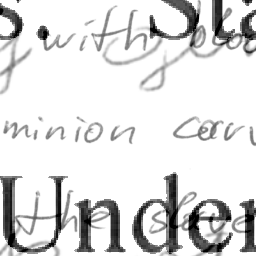 s. Sta
with bloo
minion carv
Under
the slave